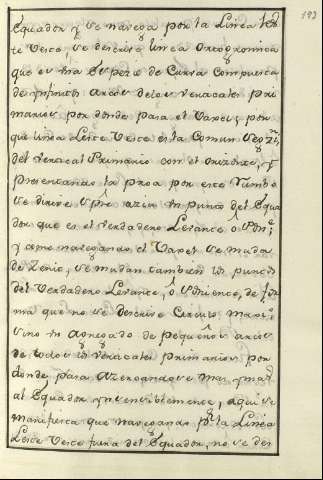 193
Equador y se navega por la Linea Les
te Veste, se descrive linea Ortogromica
que es una Espera de Curva compuesta
de infinitos arcos delos Verticales Pri
marios por donde pasa el Vaxel; por
que linea Leste Veste es la Comun
del Vertical Primario con el orizonte, y
presentando la proa por este Rumbo
se dirive spre. azia un punto del Equa
dor que es el verdadero Levante ô Pon.e
y como navegando el Vaxel se muda
de Zenic, se mudan tambien los puntos
del Verdadero Levante, ô Poniente, de for
ma que no se descrive Circulo Maxi
sino un agregado de pequeños arcos
de todos los verticales primarios por
donde pasa azercandose mas y mas
al Equador ynsensiblemente, aqui se
manifiesta que navegando pr. la Linea
Leste Veste fuera del Equador, no se des